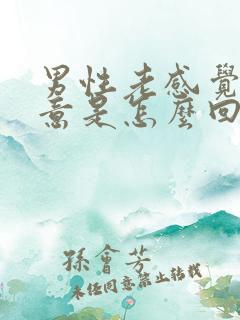 男性老感覺
意是怎麼回
孫會芳
未經同意禁止轉載